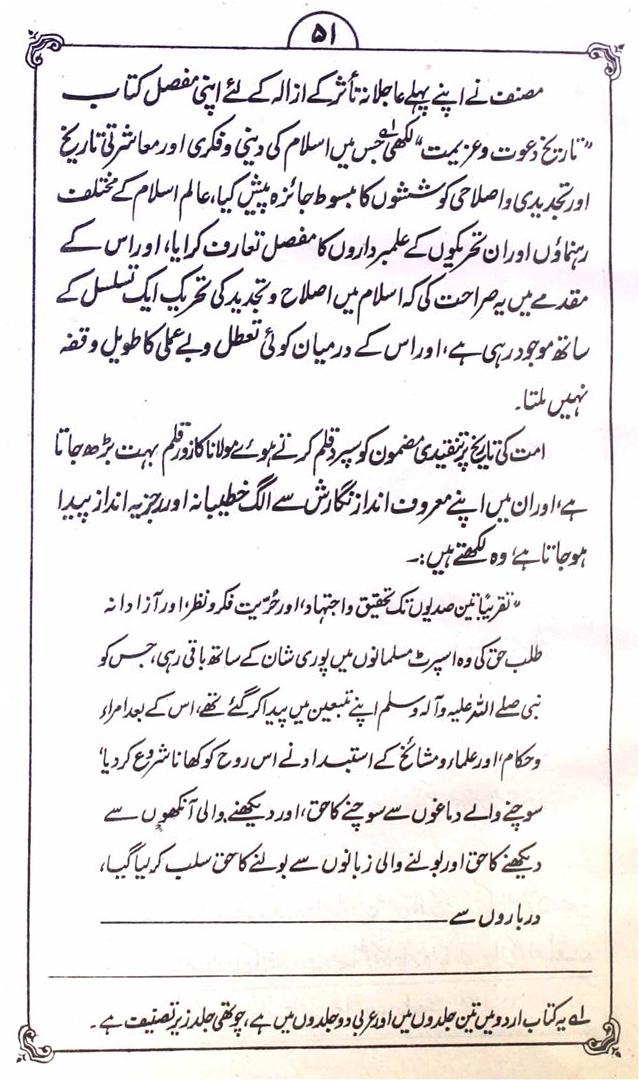 ۵۱
مصنف نے اپنے پہلے عاجلانہ تأثر کے ازالہ کے لئے اپنی مفصل کتاب
”تاریخ دعوت وعزیمت“ لکھی لے جس میں اسلام کی دینی وفکری اور معاشرتی تاریخ
اور تجدیدی واصلاحی کوششوں کا مبسوط جائزہ پیش کیا، عالم اسلام کے مختلف
رہنماؤں اور ان تحریکوں کے علمبرداروں کا مفصل تعارف کرایا، اور اس کے
مقدمے میں یہ صراحت کی کہ اسلام میں اصلاح وتجدید کی تحریک ایک تسلسل کے
ساتھ موجود رہی ہے، اور اس کے درمیان کوئی تعطل وبے عملی کا طویل وقفہ
نہیں ملتا۔
امت کی تاریخ پر تنقیدی مضمون کو سپرد قلم کرتے ہوئے مولانا کا زور قلم بہت بڑھ جاتا
ہے، اور ان میں اپنے معروف انداز نگارش سے الگ خطیبانہ اور رجزیہ انداز پیدا
ہو جاتا ہے، وہ لکھتے ہیں:۔
”تقریباً تین صدیوں تک تحقیق واجتہاد، اور حُرّیت فکر ونظر، اور آزادانہ
طلب حق کی وہ اسپرٹ مسلمانوں میں پوری شان کے ساتھ باقی رہی، جس کو
نبی صلے اللہ علیہ وآلہ وسلم اپنے متبعین میں پیدا کر گئے تھے، اس کے بعد امراء
وحکام، اور علماء ومشائخ کے استبداد نے اس روح کو کھانا شروع کر دیا،
سوچنے والے دماغوں سے سوچنے کا حق، اور دیکھنے والی آنکھوں سے
دیکھنے کا حق اور بولنے والی زبانوں سے بولنے کا حق سلب کر لیا گیا،
درباروں سے
لے یہ کتاب اردو میں تین جلدوں میں اور عربی دو جلدوں میں ہے، چوتھی جلد زیر تصنیف ہے۔